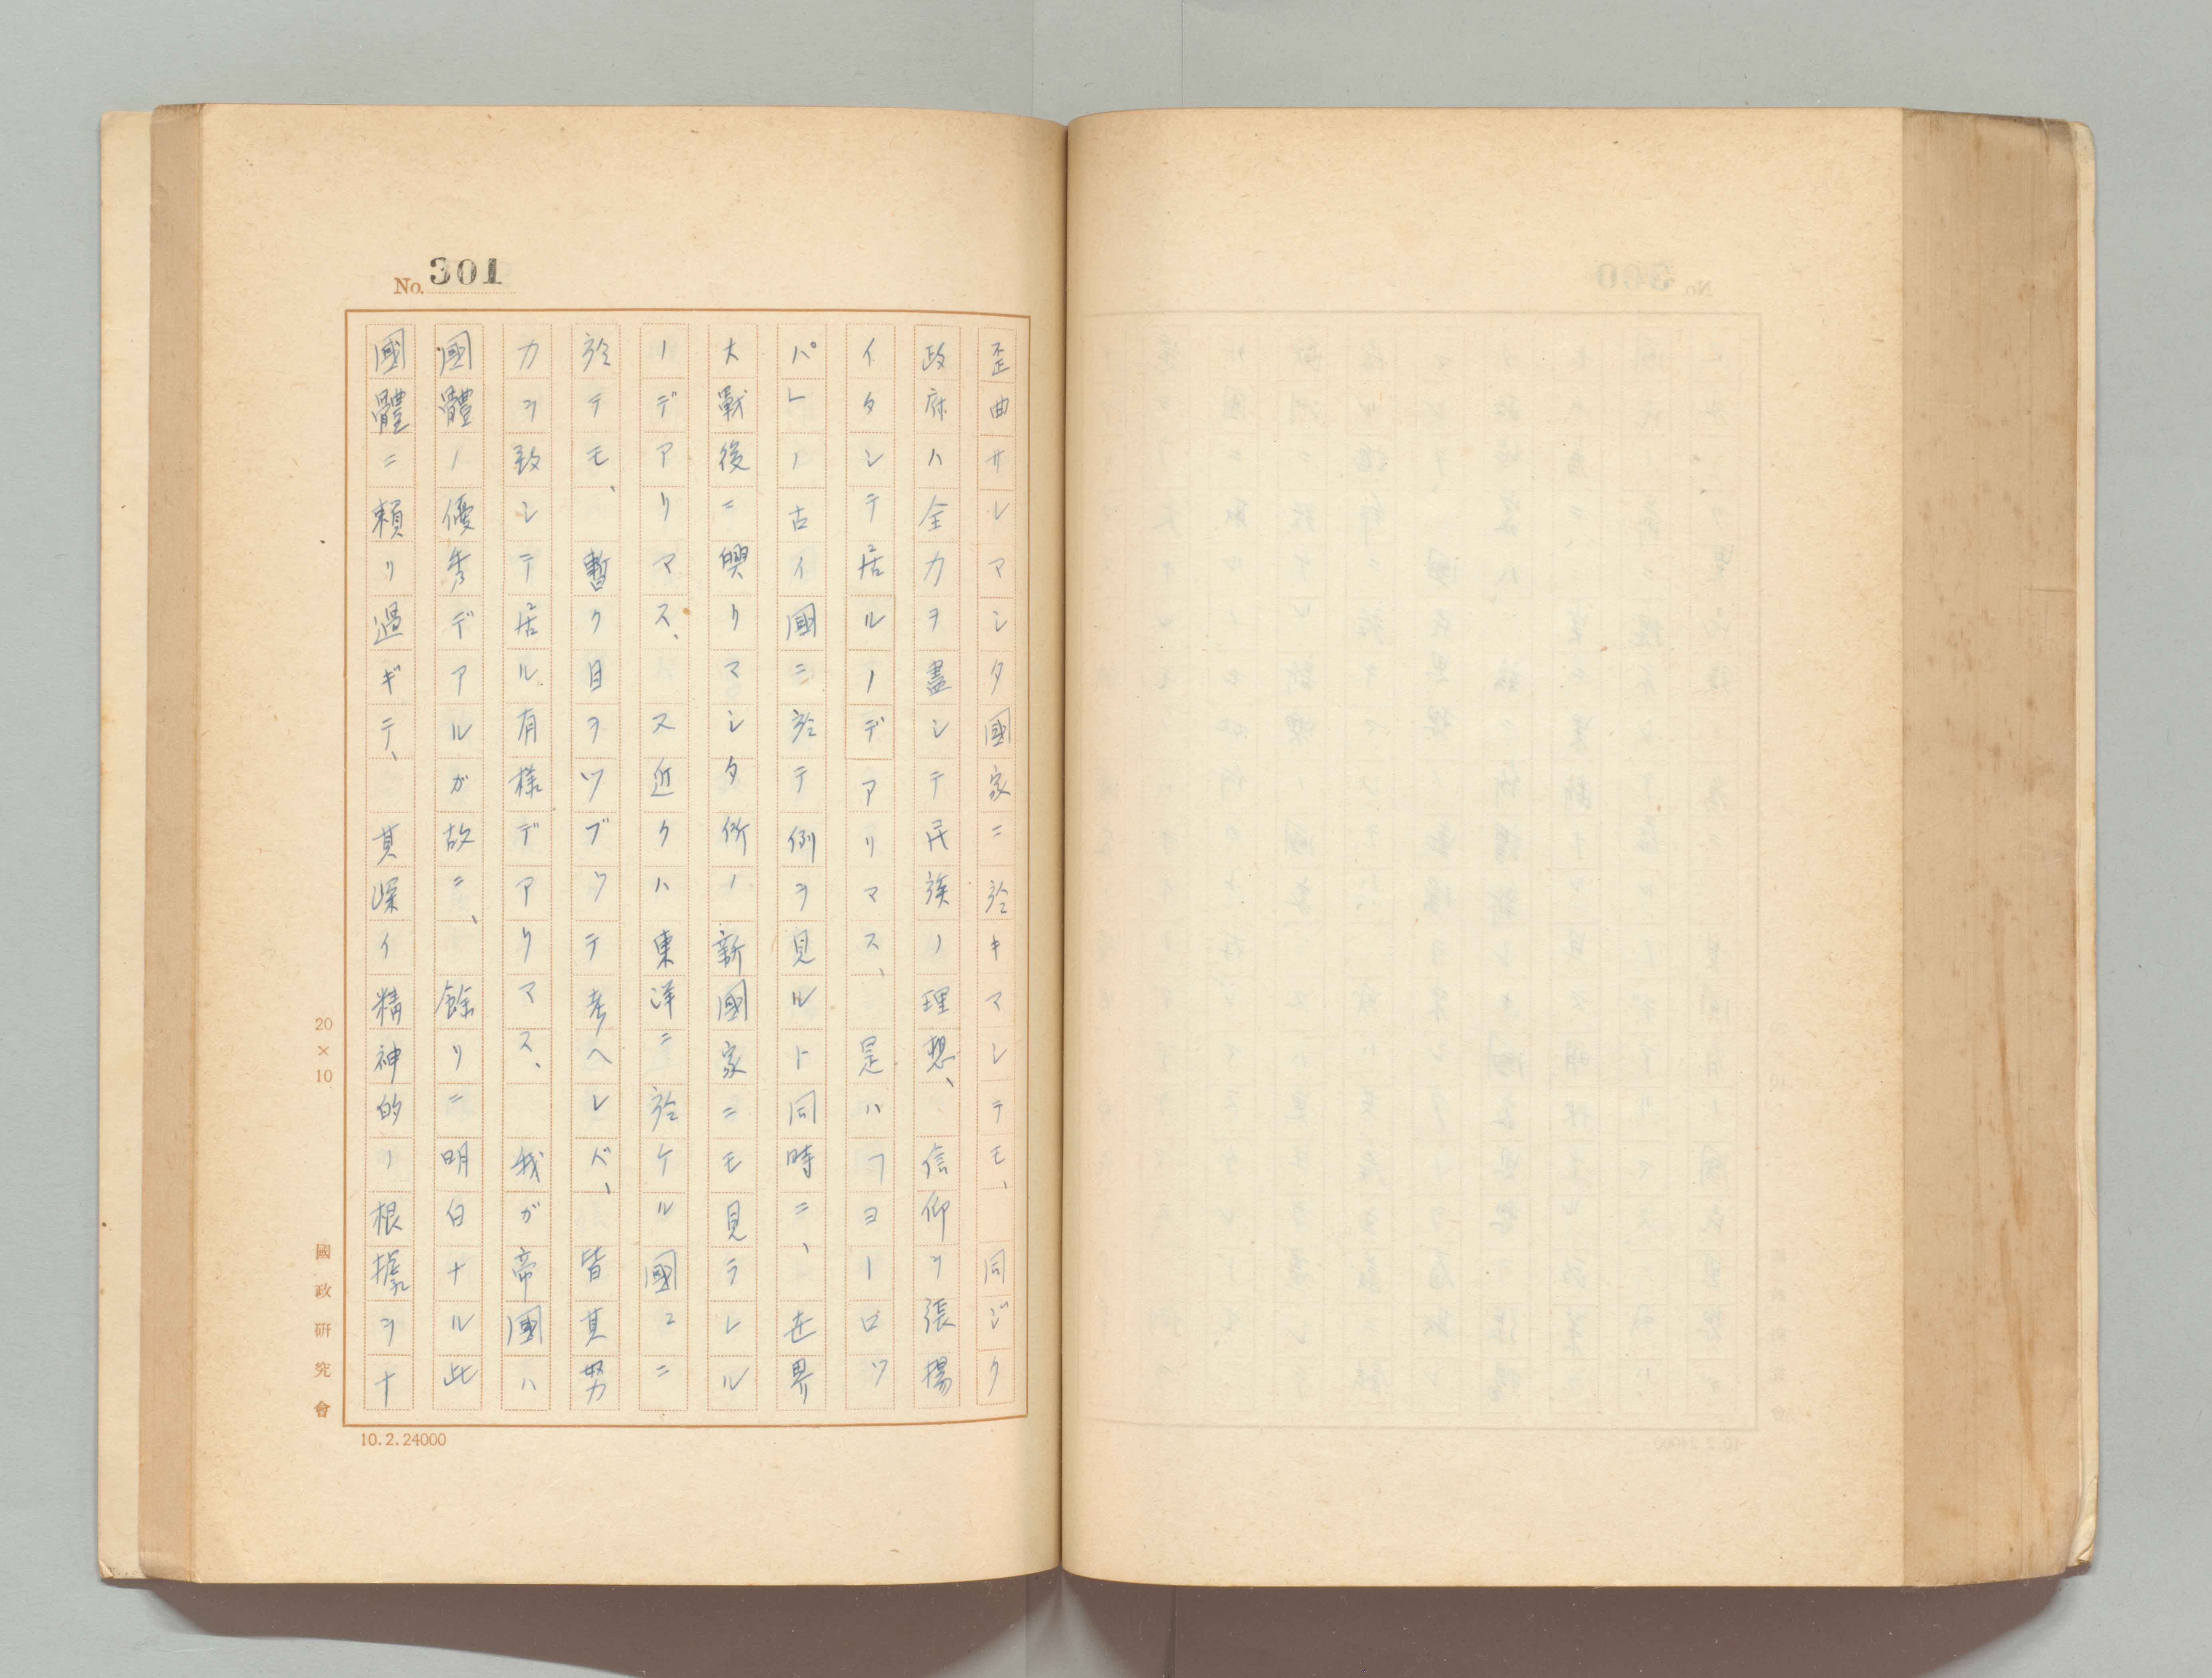 No. 301
歪曲サレマシタ國家ニ於キマシテモ、同ジク
政府ハ全力ヲ盡シテ民族ノ理想、信仰ヲ張揚
イタシテ居ルノデアリマス、是ハフヨーロツ
パ」ノ古イ國ニ於テ例ヲ見ルト同時ニ、世界
大戰後ニ興リマシタ所ノ新國家ニモ見ラレル
ノデアリマス、又近クハ東洋ニ於ケル國コニ
於テモ、暫ク目ヲツブツテ考ヘレバ、皆其努
力ヲ致シテ居ル有樣デアリマス、我ガ帝國ハ
國體ノ優秀デアルガ故ニ、餘リニ明白ナル此
國體ニ頼リ過ギテ、其深イ精神的ノ根據ヲ十
20×10
國政研究會
10.2.24000